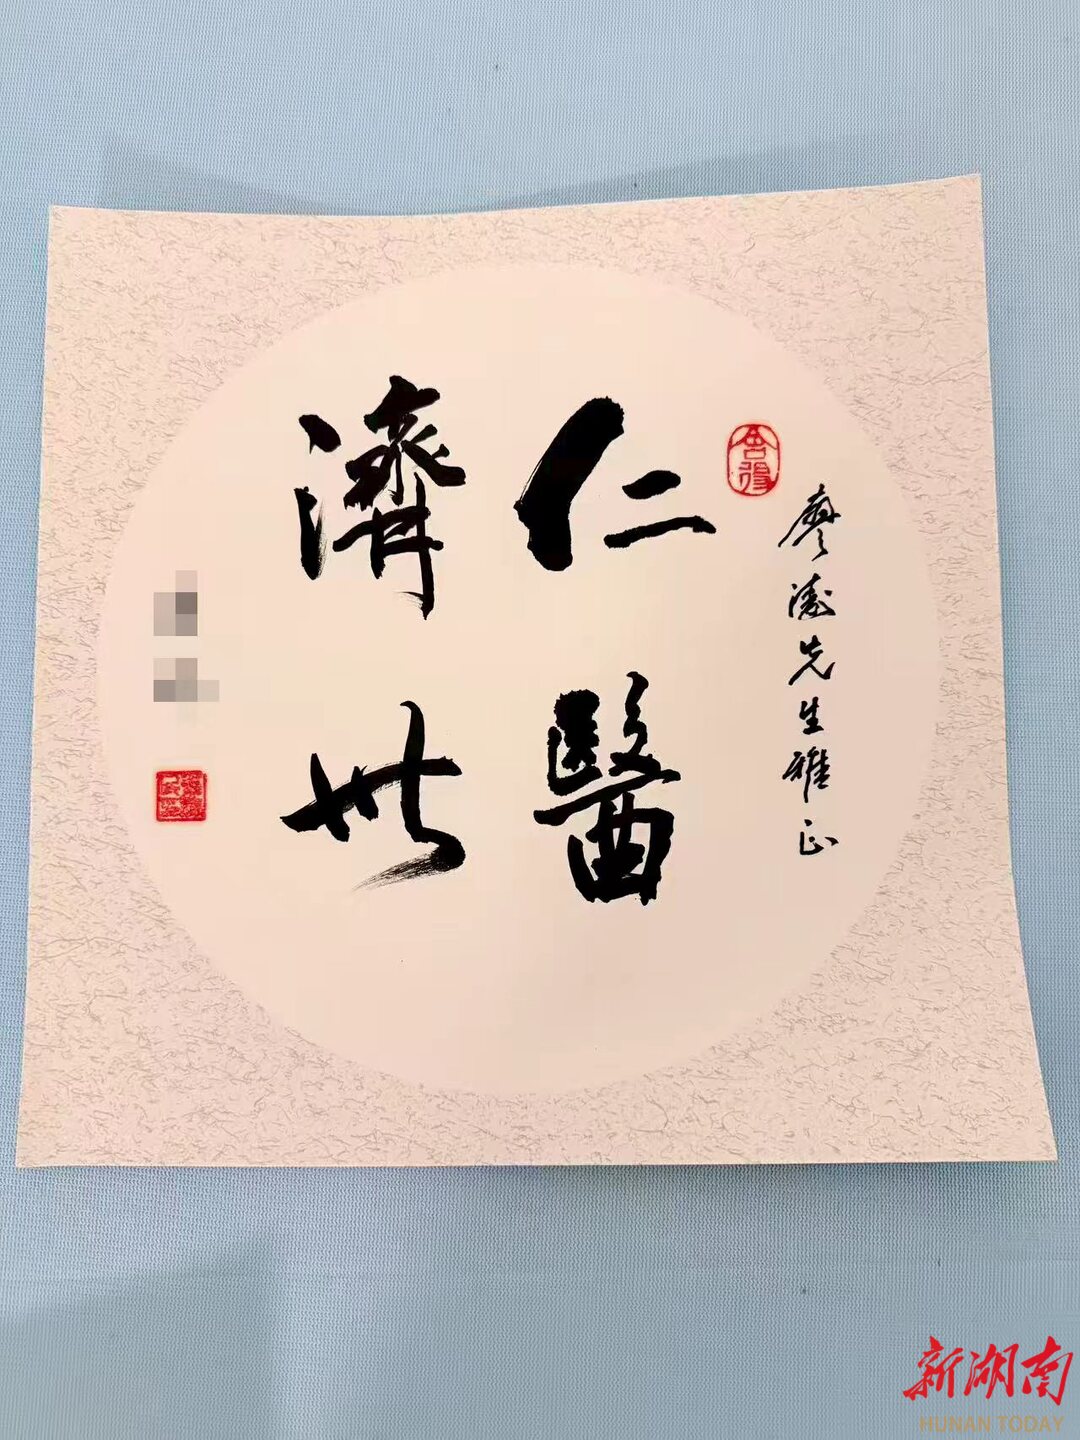 舍得
廖先生雅正
仁醫
濟世
新湖南
HUNAN TODAY